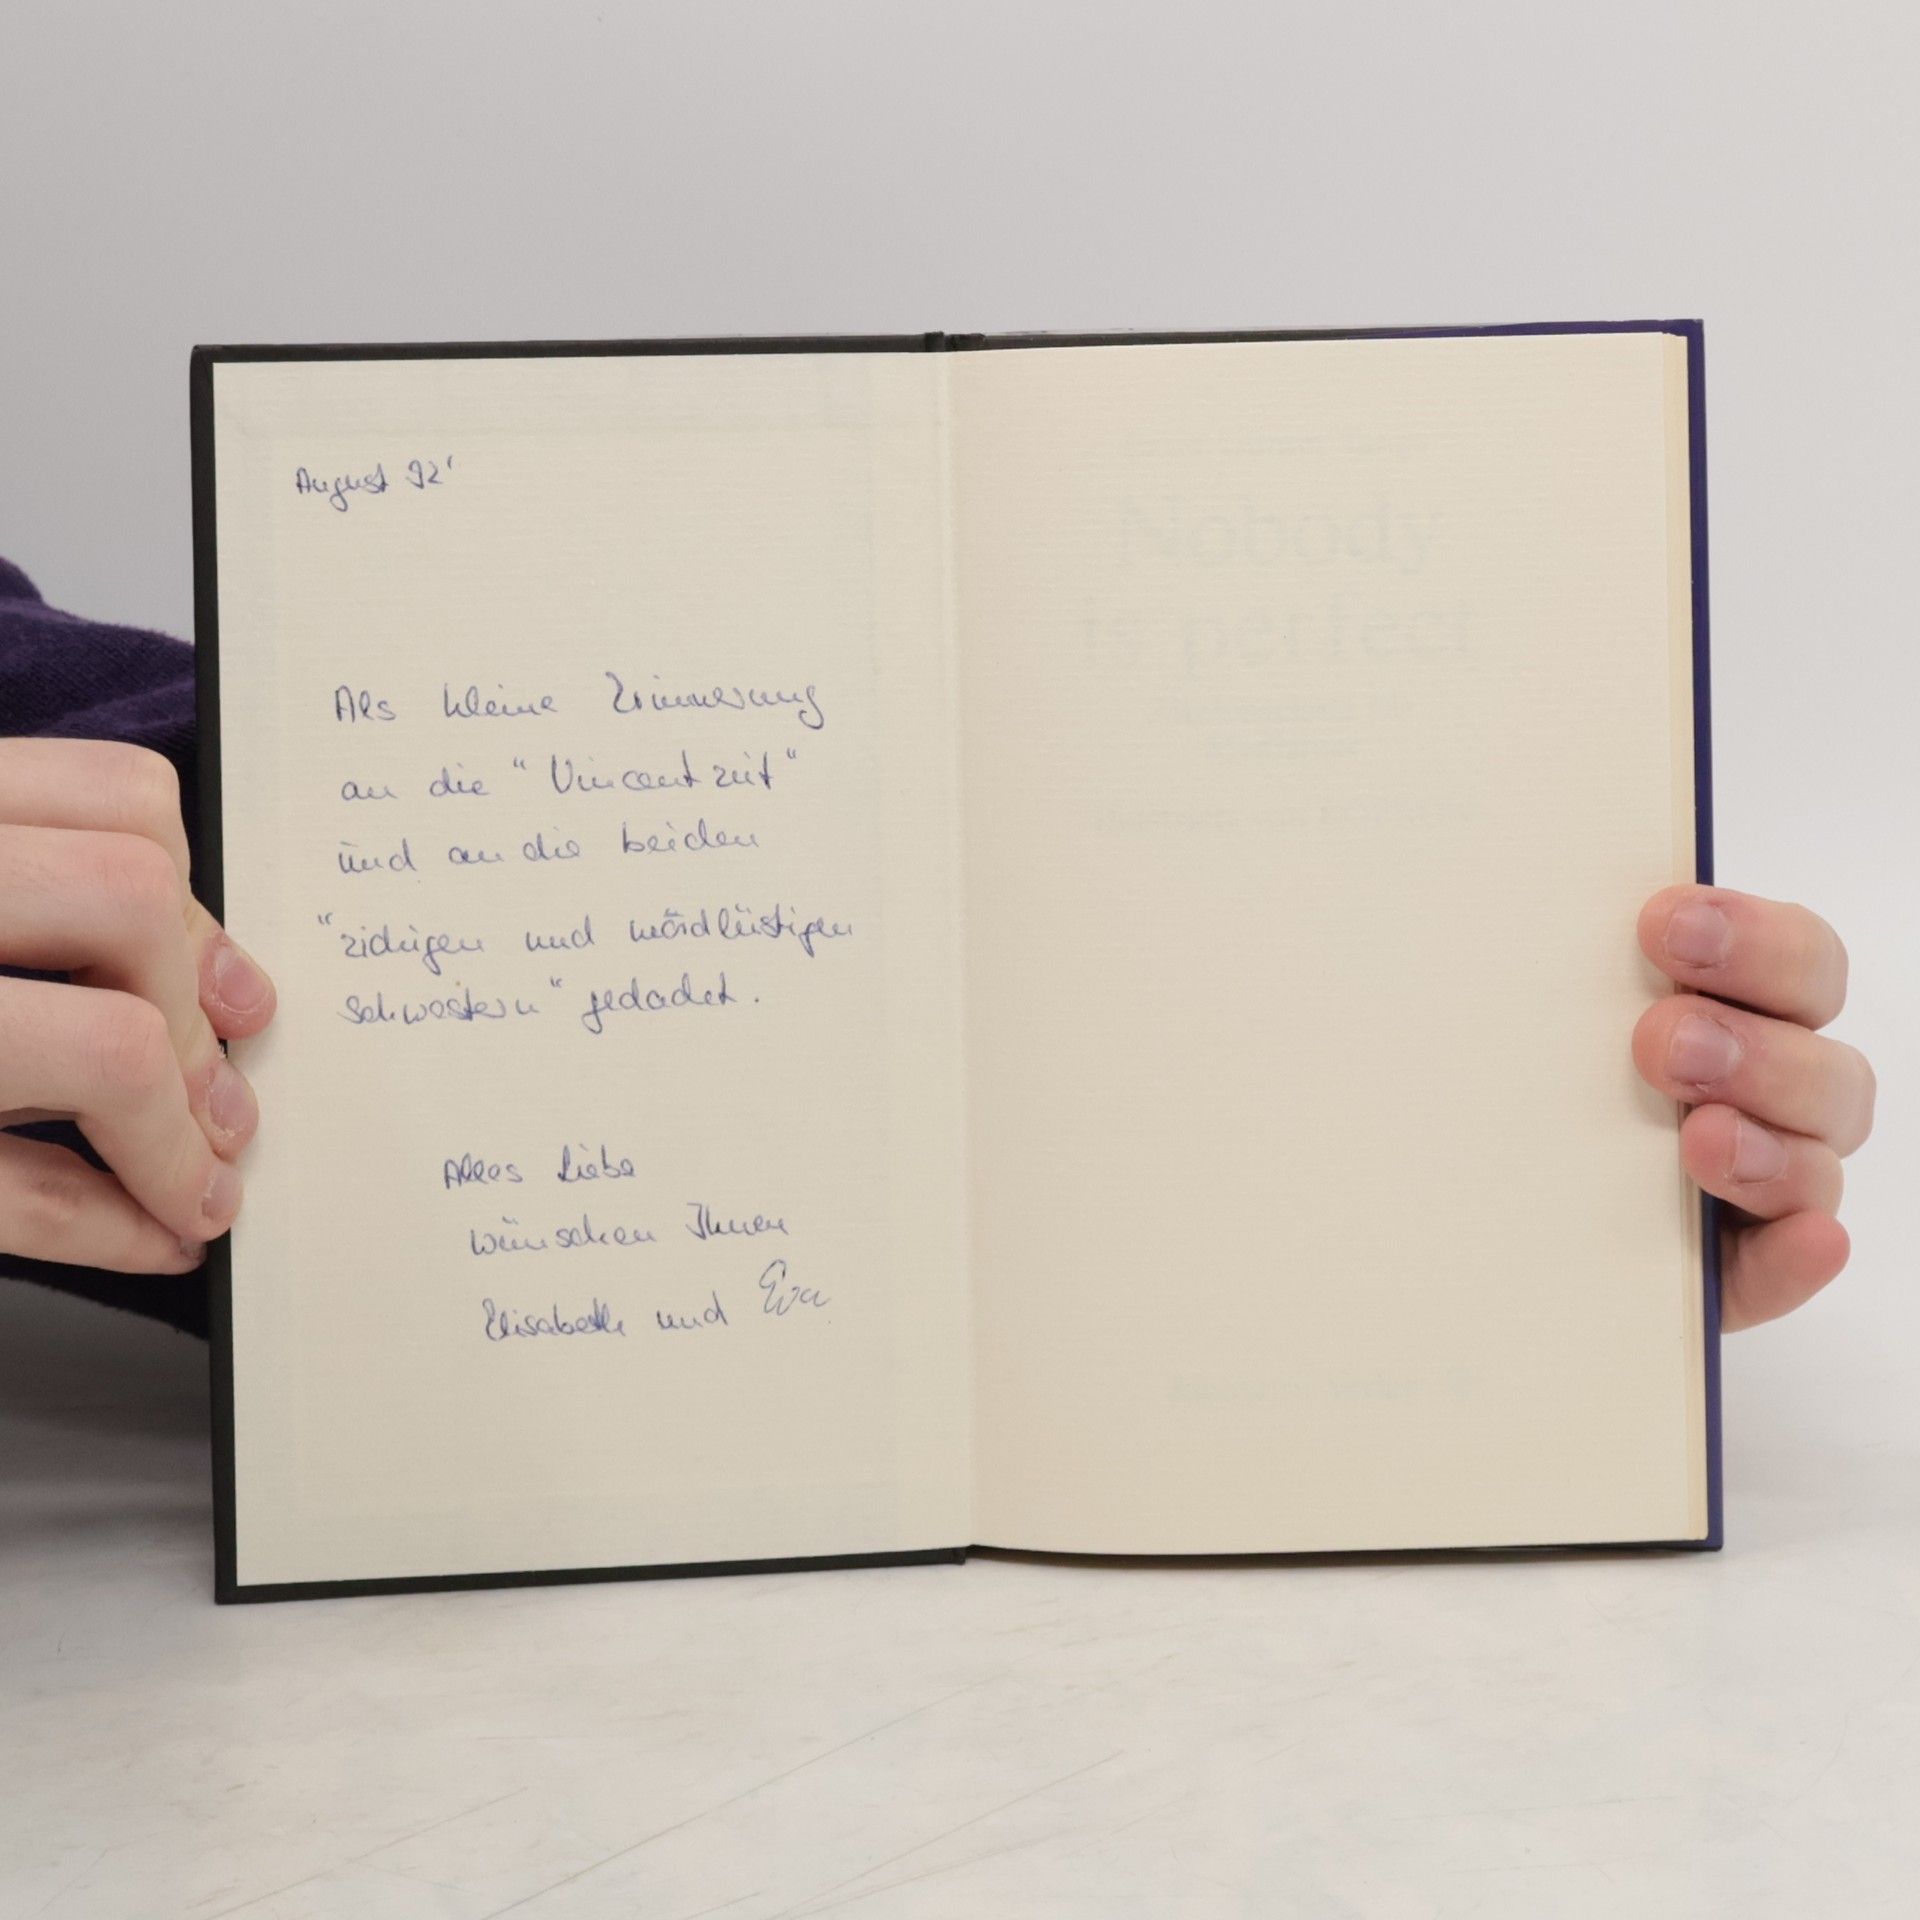 August 92'
Als kleine Erinnerung
an die "Vincentzeit"
und an die beiden
"zickigen und mördlüstigen
Schwestern" gedacht.
Alles Liebe
wünschen Ihnen
Elisabeth und Eva
Nobody
is perfect